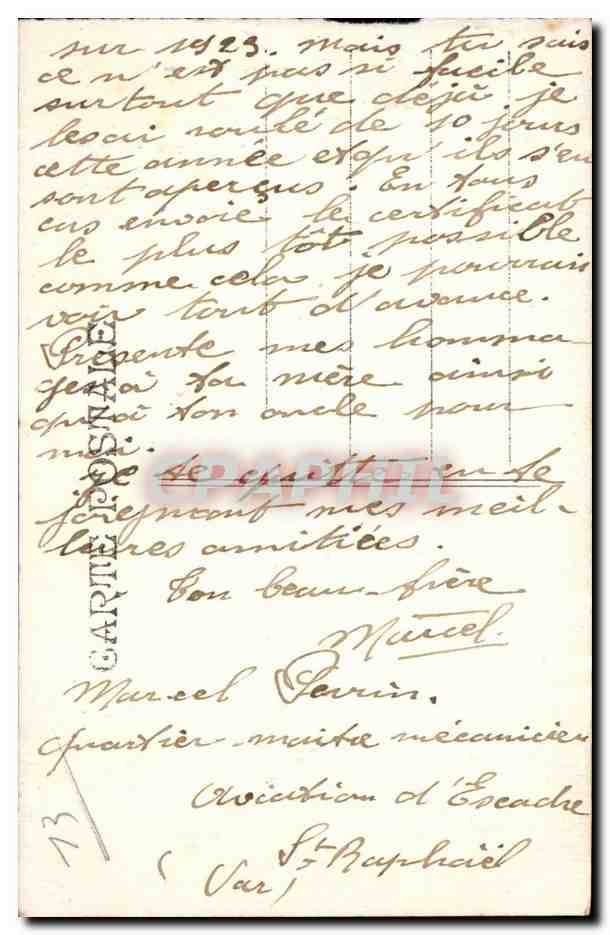 sur 1923. mais tu sais
ce n'est pas si facile
surtout que déjà je
les ai roulé de 10 jours
cette année et qu'ils s'en
sont aperçus. En tous
cas envoie le certificat
le plus tôt possible
comme cela je pourrai
voir tout d'avance.
Présente mes homma
ges à ta mère ainsi
qu'à ton oncle pour
moi.
Je te quitte en te
joignant mes meil-
leures amitiées.
Ton beau-frère
Marcel.
Marcel Perrin.
quartier-maitre mécanicien
Aviation d'Escadre
St Raphaël
(Var)
CARTE POSTALE
13
CPAPHIL